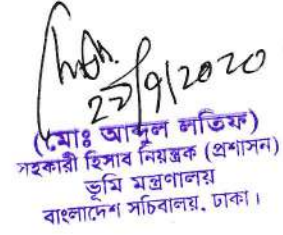 ২২/9/2020
(মোঃ আব্দুল লতিফ)
সহকারী হিসাব নিয়ন্ত্রক (প্রশাসন)
ভূমি মন্ত্রণালয়
বাংলাদেশ সচিবালয়, ঢাকা।